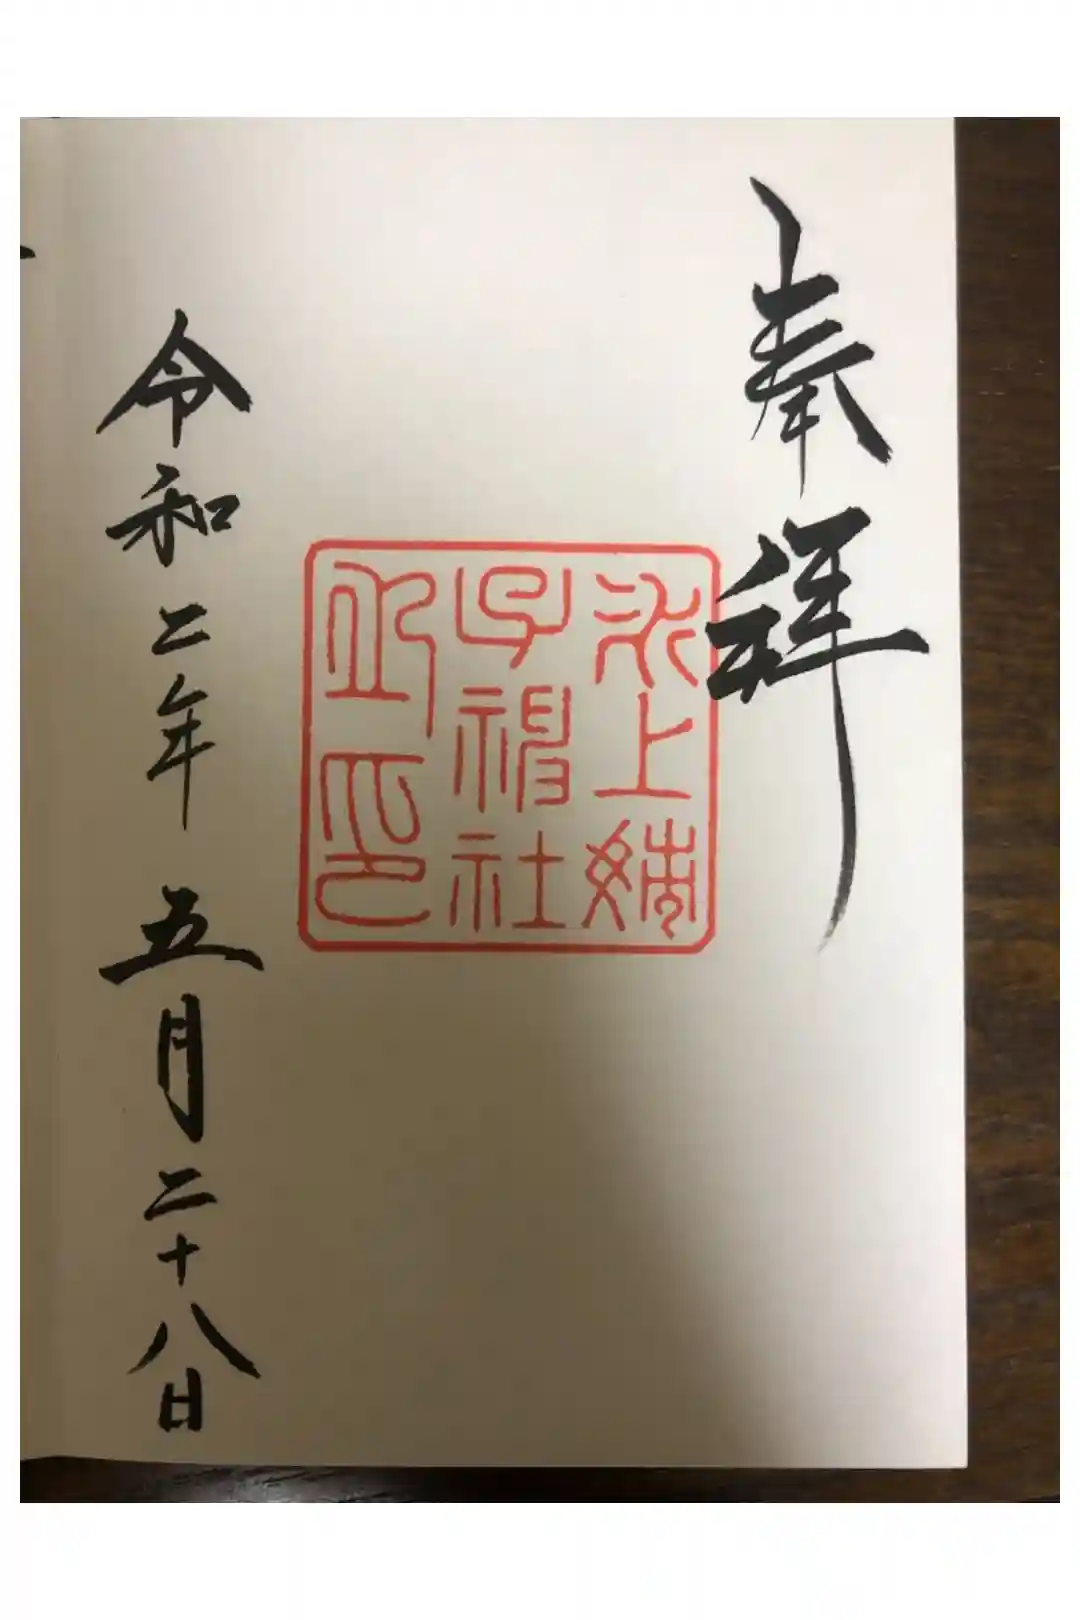 奉拝
氷上姉
子神社
印
令和二年五月二十八日